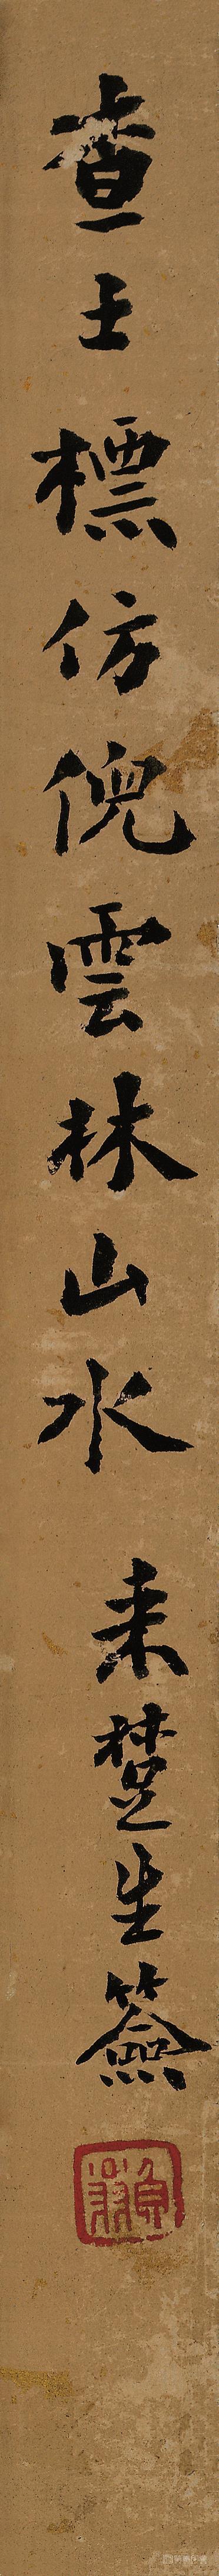 查士標仿倪雲林山水 来楚生簽